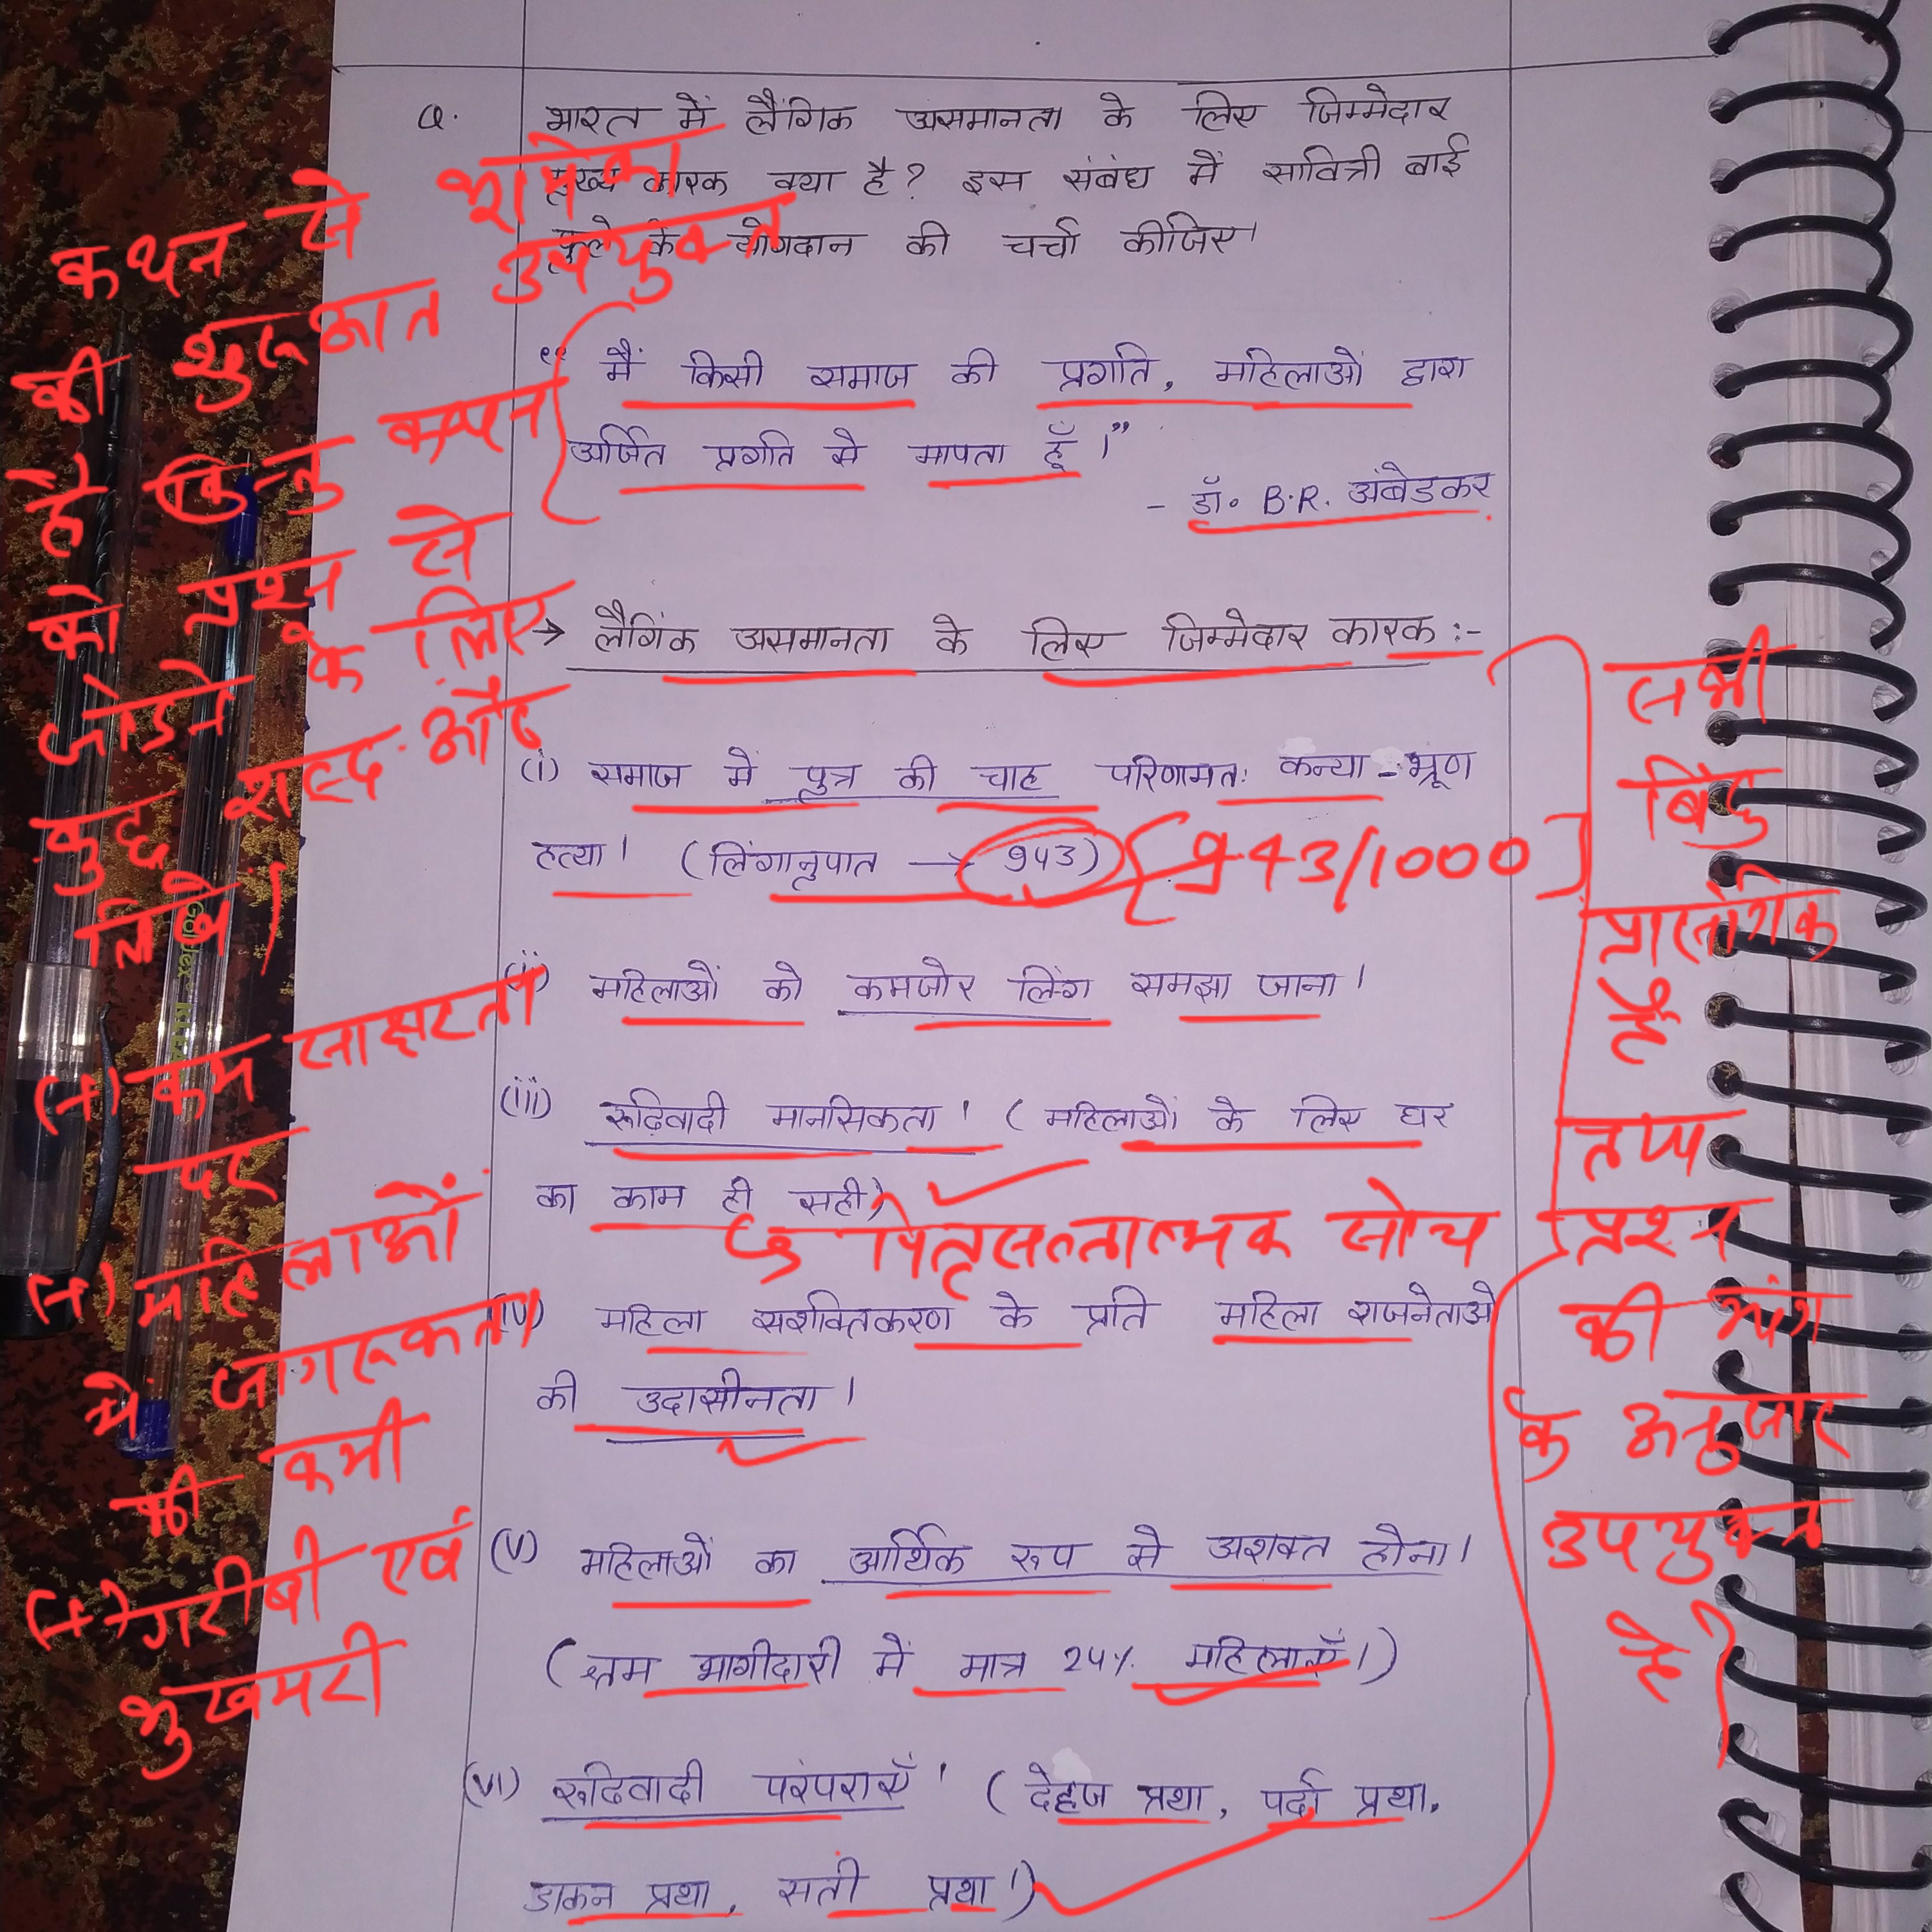 Q. भारत में लैंगिक असमानता के लिए जिम्मेदार
मुख्य कारक क्या है? इस संबंध में सावित्री बाई
फुले के योगदान की चर्चा कीजिए।
कथन से भूमिका
की शुरूआत उपयुक्त
है किन्तु कथन
को प्रश्न से
जोडने के लिए
कुछ शब्द और
लिखें।
" मैं किसी समाज की प्रगति, महिलाओं द्वारा
अर्जित प्रगति से मापता हूँ।"
- डॉ. B.R. अंबेडकर
→ लैगिंक असमानता के लिए जिम्मेदार कारक :-
(i) समाज में पुत्र की चाह परिणामत: कन्या-भ्रूण
हत्या। (लिंगानुपात → 943) (943/1000)
(ii) महिलाओं को कमजोर लिंग समझा जाना।
(iii) रूढ़िवादी मानसिकता। (महिलाओं के लिए घर
का काम ही सही)
→ पितृसत्तात्मक सोच
(iv) महिला सशक्तिकरण के प्रति महिला राजनेताओं
की उदासीनता।
(v) महिलाओं का आर्थिक रूप से अशक्त होना।
(श्रम भागीदारी में मात्र 24% महिलाएँ।)
(vi) रूढिवादी परंपराएँ। (देहज प्रथा, पर्दा प्रथा,
डाकन प्रथा, सती प्रथा।)
(+) कम साक्षरता
दर
(+) महिलाओं
में जागरूकता
की कमी
(+) गरीबी एवं
भुखमरी
सभी
बिंदु
प्रासंगिक
हैं
तथा
प्रश्न
की मांग
के अनुसार
उपयुक्त
है।